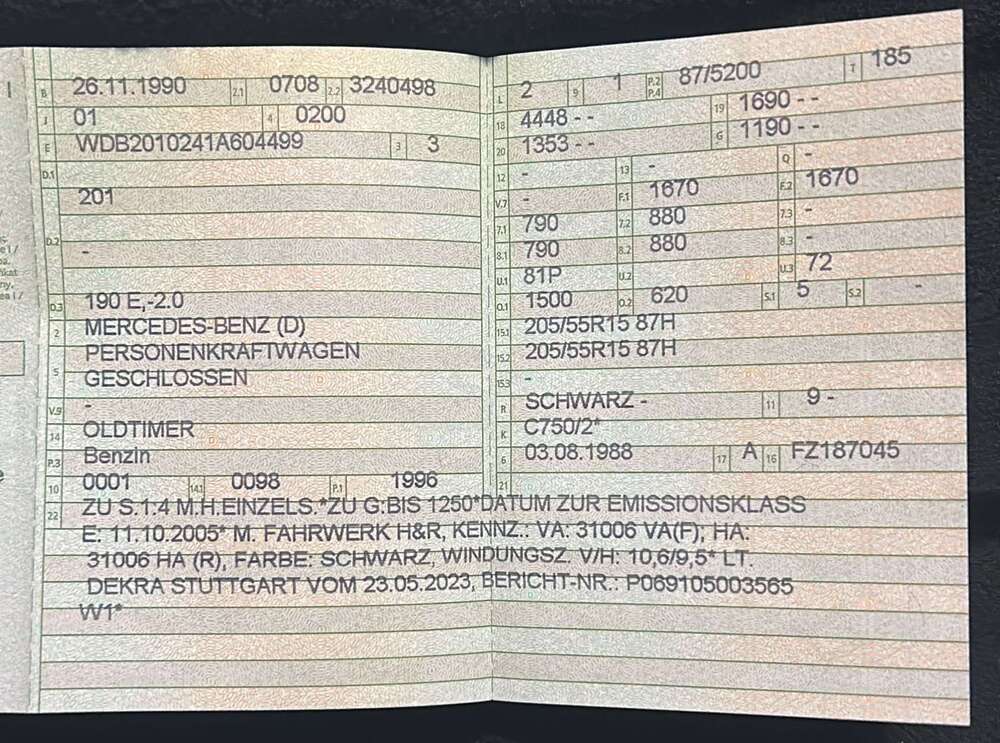 B 26.11.1990 2.1 0708 2.2 3240498
J 01 4 0200
E WDB2010241A604499 3 3
D.1 201
D.2 -
D.3 190 E,-2.0
2 MERCEDES-BENZ (D)
5 PERSONENKRAFTWAGEN
GESCHLOSSEN
V.9 -
14 OLDTIMER
P.3 Benzin
10 0001 14.1 0098 P.1 1996
L 2 9 1 P.2 P.4 87/5200 T 185
18 4448 - - 19 1690 - -
20 1353 - - G 1190 - -
12 - 13 - Q -
V.7 - F.1 1670 F.2 1670
7.1 790 7.2 880 7.3 -
8.1 790 8.2 880 8.3 -
U.1 81P U.2 U.3 72
O.1 1500 O.2 620 S.1 5 S.2 -
15.1 205/55R15 87H
15.2 205/55R15 87H
15.3 -
R SCHWARZ - 11 9 -
K C750/2*
6 03.08.1988 17 A 16 FZ187045
21
22 ZU S.1:4 M.H.EINZELS.*ZU G:BIS 1250*DATUM ZUR EMISSIONSKLASS
E: 11.10.2005* M. FAHRWERK H&R, KENNZ.: VA: 31006 VA(F); HA:
31006 HA (R), FARBE: SCHWARZ, WINDUNGSZ. V/H: 10,6/9,5* LT.
DEKRA STUTTGART VOM 23.05.2023, BERICHT-NR.: P069105003565
W1*